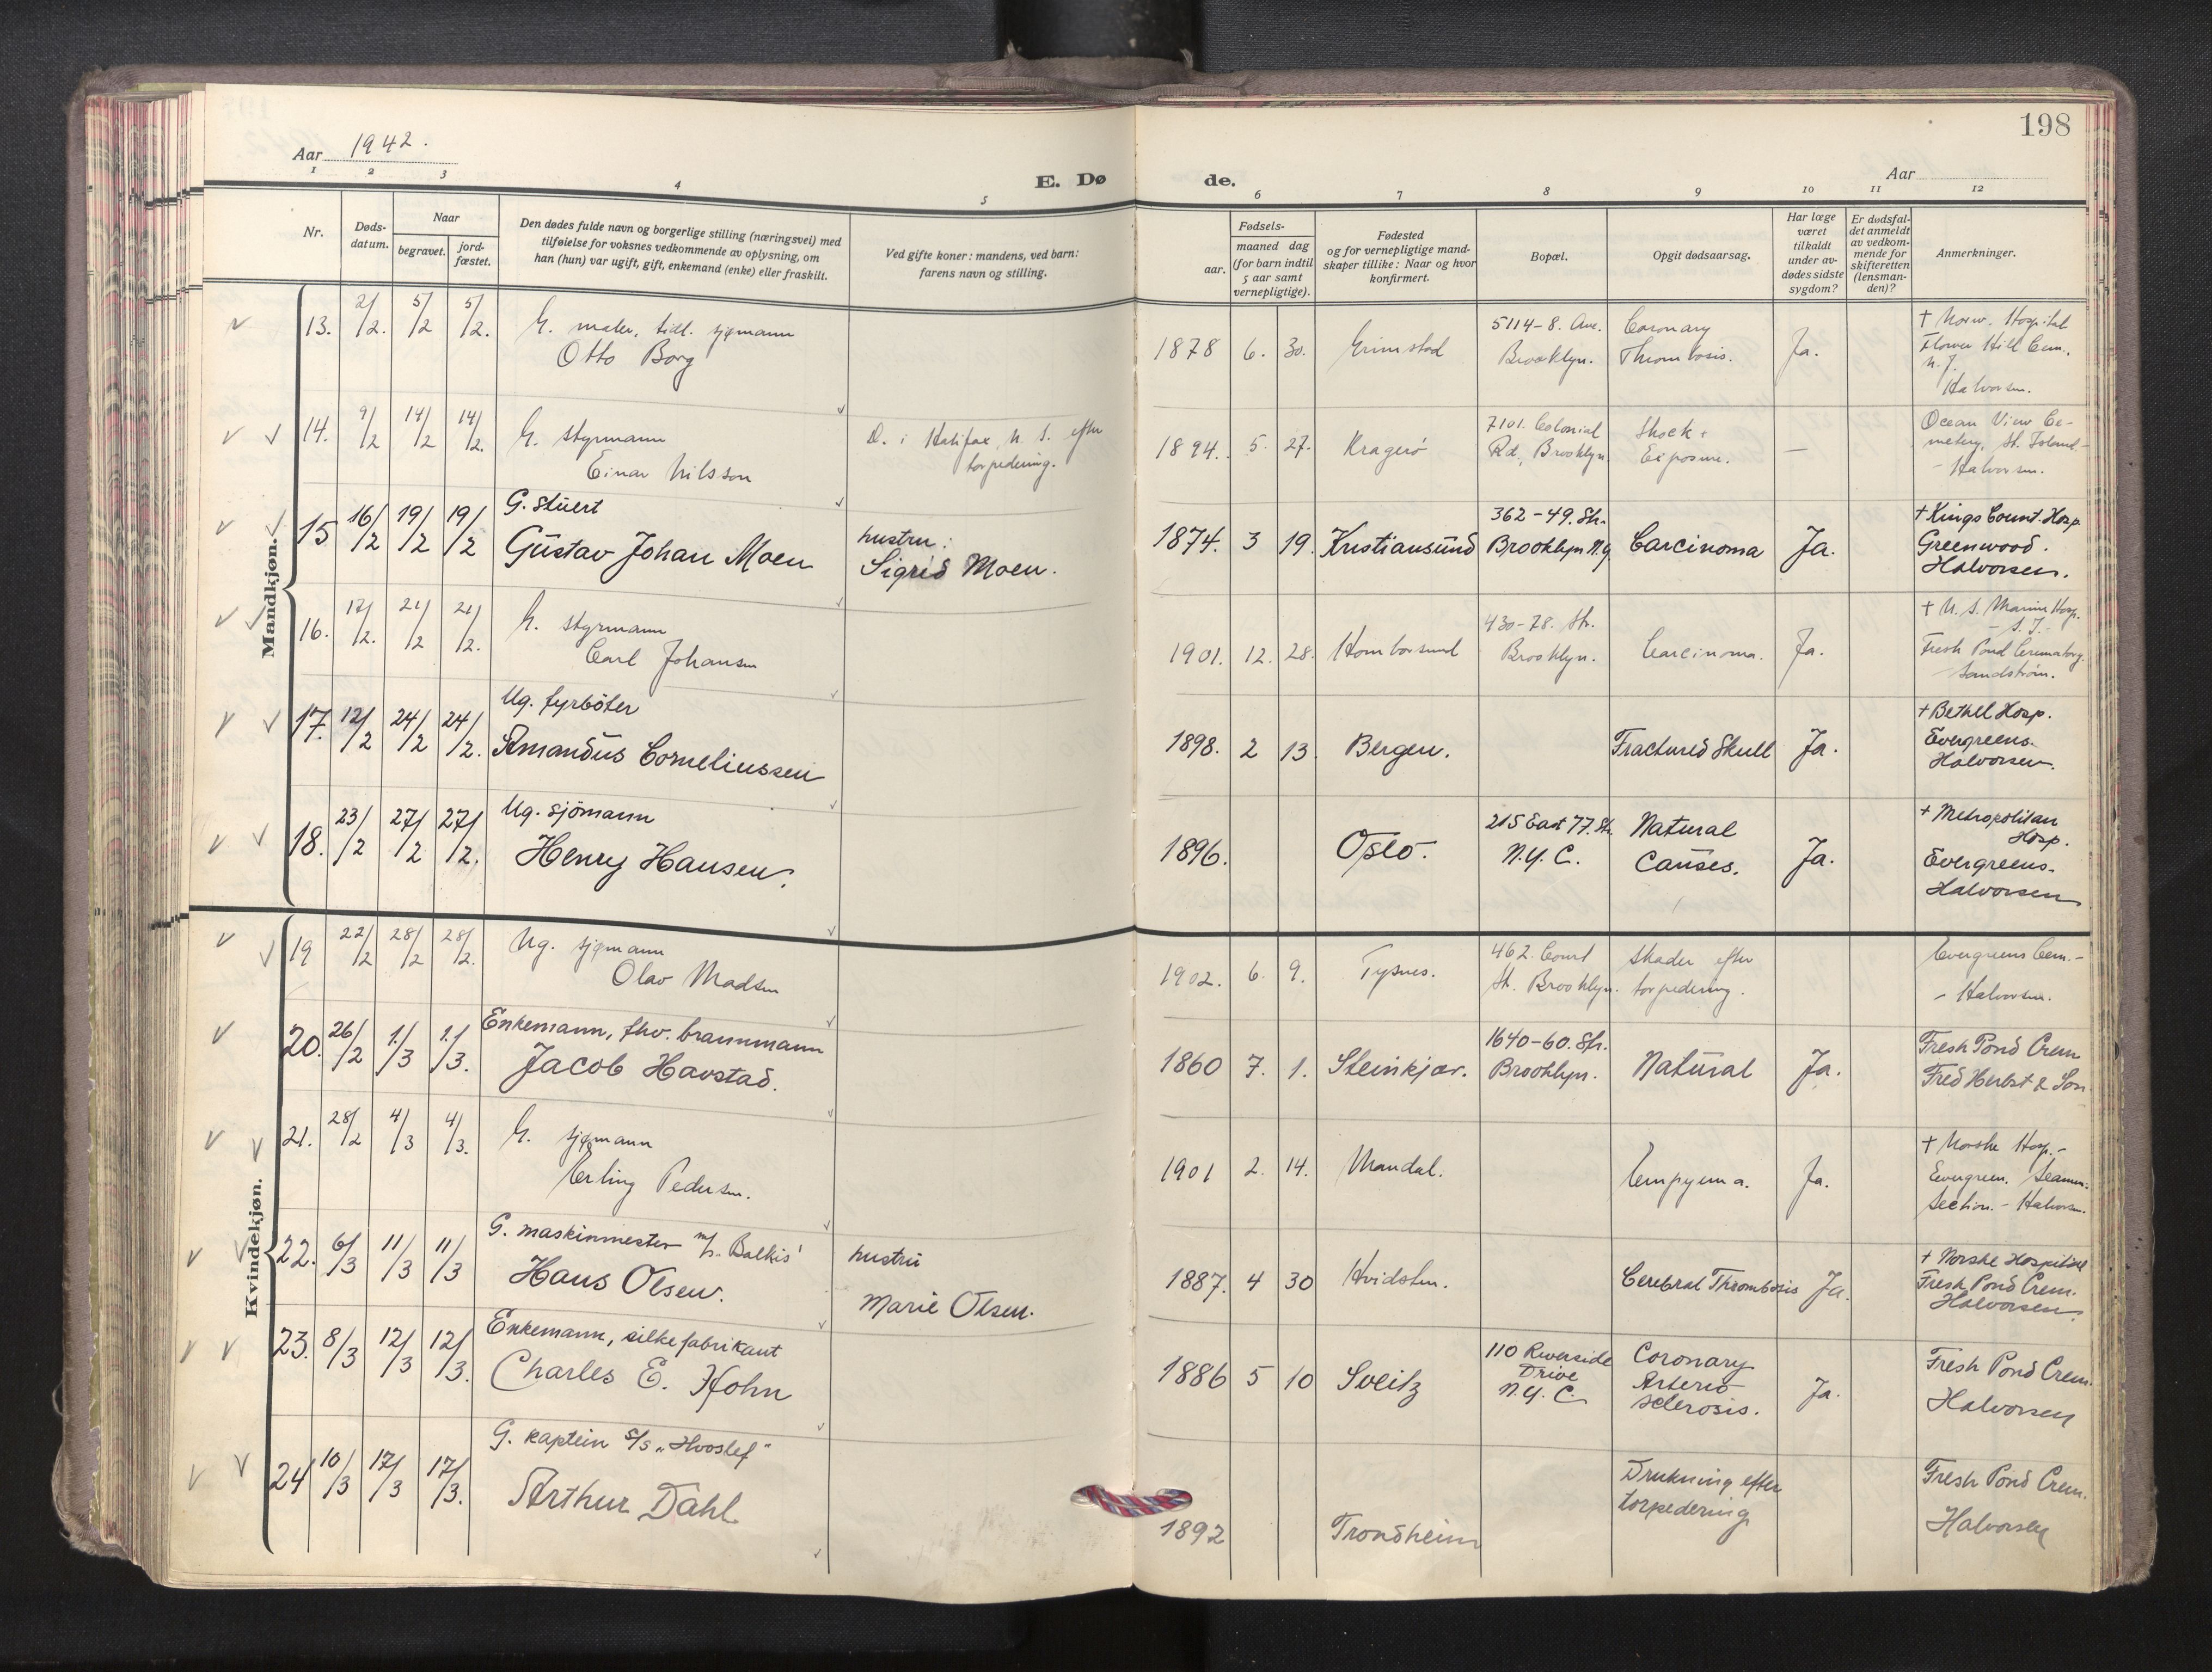 198
Aar 1942.
E. Dø
de.
Aar
1 2 3 4 5 6 7 8 9 10 11 12
Nr.
Døds-
datum.
Naar
begravet.
jord-
fæstet.
Den dødes fulde navn og borgerlige stilling (næringsvei) med
tilføielse for voksnes vedkommende av oplysning, om
han (hun) var ugift, gift, enkemand (enke) eller fraskilt.
Ved gifte koner: mandens, ved barn:
farens navn og stilling.
Fødsels-
aar.
maaned dag
(for barn indtil
5 aar samt
vernepligtige).
Fødested
og for vernepligtige mand-
skaper tillike: Naar og hvor
konfirmert.
Bopæl.
Opgit dødsaarsag.
Har læge
været
tilkaldt
under av-
dødes sidste
sygdom?
Er dødsfal-
det anmeldt
av vedkom-
mende for
skifteretten
(lensman-
den)?
Anmerkninger.
Mandkjøn.
13. 2/2. 5/2 5/2.
G. maler, tidl. sjømann
Otto Borg
1878 6. 30. Grimstad
5114-8. Ave.
Brooklyn.
Coronary
Thrombosis.
Ja.
+ Norw. Hospital
Flower Hill Cem.,
N. J.
Halvorsen.
14. 9/2 14/2 14/2.
G. styrmann
Einar Nilsson
D. i Halifax, N. S. efter
torpedering.
1894. 5. 27. Kragerø
7101. Colonial
Rd., Brooklyn.
Shock +
Exposure.
—
Ocean View Ce-
metery, St. Island -
- Halvorsen.
15 16/2 19/2 19/2
G. Stuert
Gustav Johan Moen
hustru:
Sigrid Moen.
1874. 3 19. Kristiansund
362-49. Str.
Brooklyn N.Y
Carcinoma
Ja.
+ Kings Count. Hosp.
Greenwood.
Halvorsen.
16. 17/2. 21/2 21/2.
G. styrmann
Carl Johansen
1901. 12. 28. Homborsund
430-78. Str.
Brooklyn.
Carcinoma.
Ja.
+ U. S. Marine Hosp.
- S. I. -
Fresh Pond Crematory.
Sandstrøm.
17. 12/2 24/2 24/2.
Ug. fyrböter
Amandus Corneliussen
1898. 2 13. Bergen.
Fractured Skull
Ja.
+ Bethel Hosp.
Evergreens.
Halvorsen.
18. 23/2 27/2 27/2.
Ug. sjömann
Henry Hansen.
1896. Oslo.
215 East 77. Str.
N.Y.C.
Natural
Causes.
Ja.
+ Metropolitan
Hosp.
Evergreens.
Halvorsen
Kvindekjøn.
19 22/2 28/2 28/2.
Ug. sjømann
Olav Madsen
1902. 6. 9. Tysnes.
462. Court
St. Brooklyn.
Skader efter
torpedering.
Evergreens Cem. -
- Halvorsen.
20. 26/2 1./3 1./3.
Enkemann, fhv. brannmann
Jacob Havstad.
1860 7. 1. Steinkjær.
1640-60. Str.
Brooklyn.
Natural
Ja.
Fresh Pond Crem
Fred Herbst & Son.
21. 28/2 4/3 4/3.
G. sjømann
Erling Pedersen.
1901 2. 14. Mandal.
Empyema.
Ja.
+ Norske Hosp. -
Evergreen. Seamen.
Section. - Halvorsen.
22. 6/3 11/3 11/3
G. maskinmester m/s. Balkis'
Hans Olsen.
hustru
Marie Olsen.
1887. 4 30 Hvidsten.
Cerebral Thrombosis
Ja.
+ Norske Hospital
Fresh Pond Crem.
Halvorsen.
23. 8/3 12/3 12/3.
Enkemann, silkefabrikant
Charles E. Hohn
1886 5 10 Sveitz
110 Riverside
Drive
N.Y.C.
Coronary
Arterio
sclerosis.
Ja.
Fresh Pond Crem.
Halvorsen
24 10/3 17/3 17/3.
G. kaptein S/S „Hvoslef"
Arthur Dahl
1892 Trondheim
Drukning efter
torpedering
Fresh Pond Crem.
Halvorsen